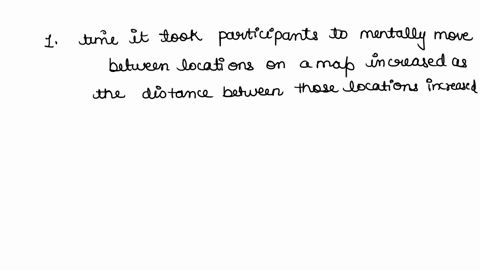 1. time it took participants to mentally move
between locations on a map increased as
the distance between those locations increased